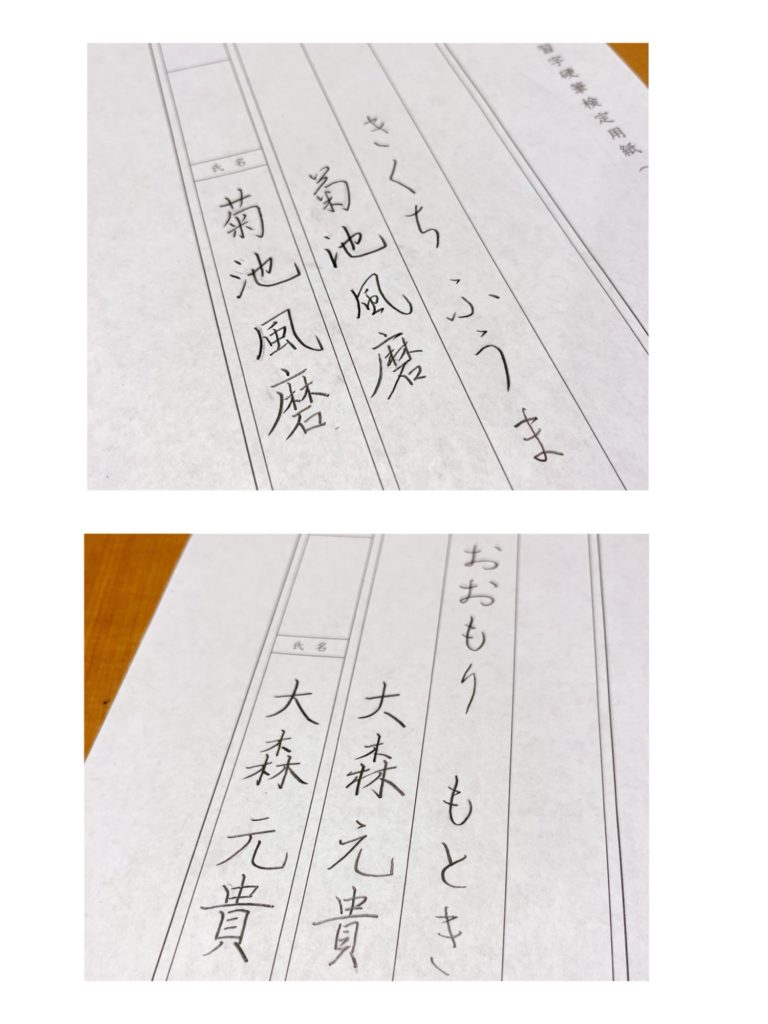 習字硬筆検定用紙（
きくち ふうま
菊池風磨
氏名
菊池風磨
おおもり もとき
大森元貴
氏名
大森元貴